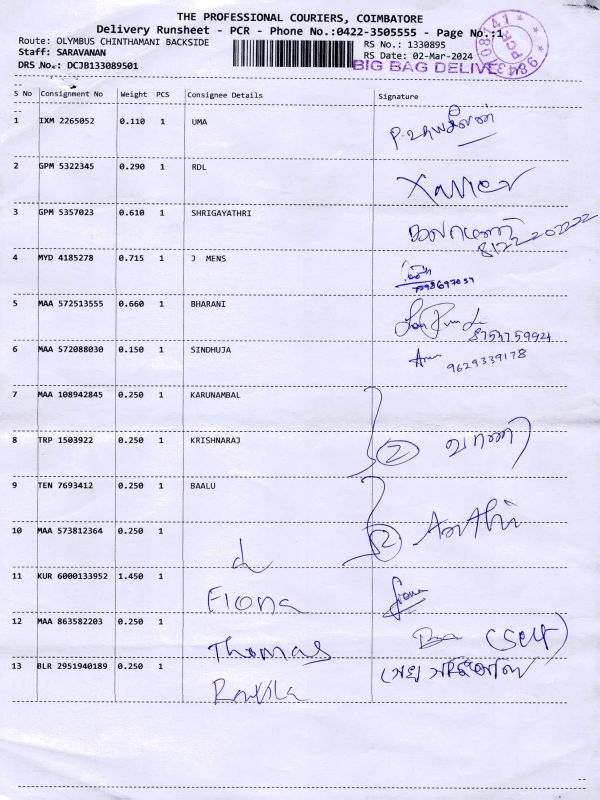 THE PROFESSIONAL COURIERS, COIMBATORE
Delivery Runsheet - PCR - Phone No.:0422-3505555 - Page No.:1
Route: OLYMBUS CHINTHAMANI BACKSIDE RS No.: 1330895
Staff: SARAVANAN RS Date: 02-Mar-2024
DRS No.: DCJB133089501 BIG BAG DELIVE
PCR
S No Consignment No Weight PCS Consignee Details Signature
1 IXM 2265052 0.110 1 UMA
2 GPM 5322345 0.290 1 RDL Xavier
3 GPM 5357023 0.610 1 SHRIGAYATHRI
8122202222
4 MYD 4185278 0.715 1 J MENS
5 MAA 572513555 0.660 1 BHARANI
8754759924
6 MAA 572088030 0.150 1 SINDHUJA Arun
9629339178
7 MAA 108942845 0.250 1 KARUNAMBAL
8 TRP 1503922 0.250 1 KRISHNARAJ 2
9 TEN 7693412 0.250 1 BAALU
10 MAA 573812364 0.250 1 2 Aarthi
11 KUR 6000133952 1.450 1 Fiona
12 MAA 863582203 0.250 1 Thomas (Self)
13 BLR 2951940189 0.250 1